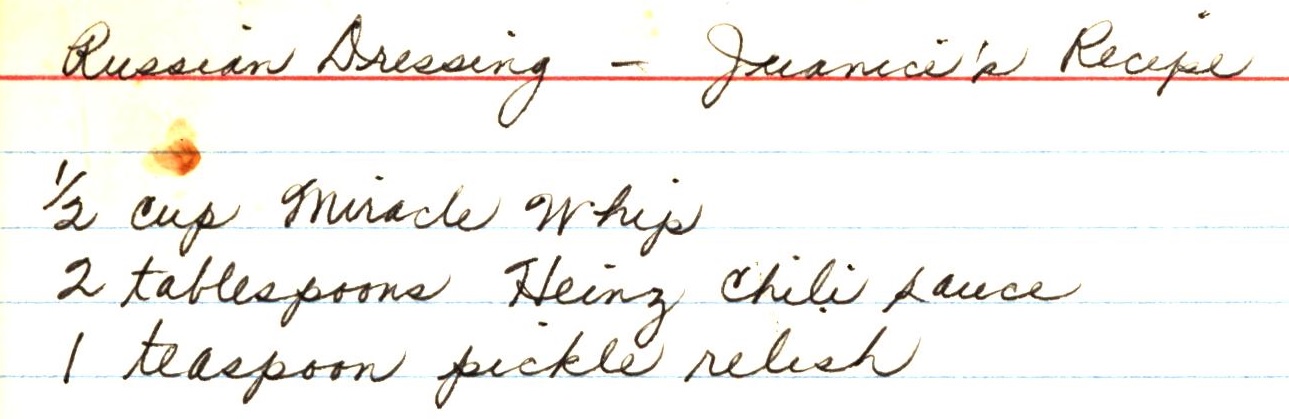 Russian Dressing — Juanici's Recipe
1/2 cup Miracle Whip
2 tablespoons Heinz Chili sauce
1 teaspoon pickle relish